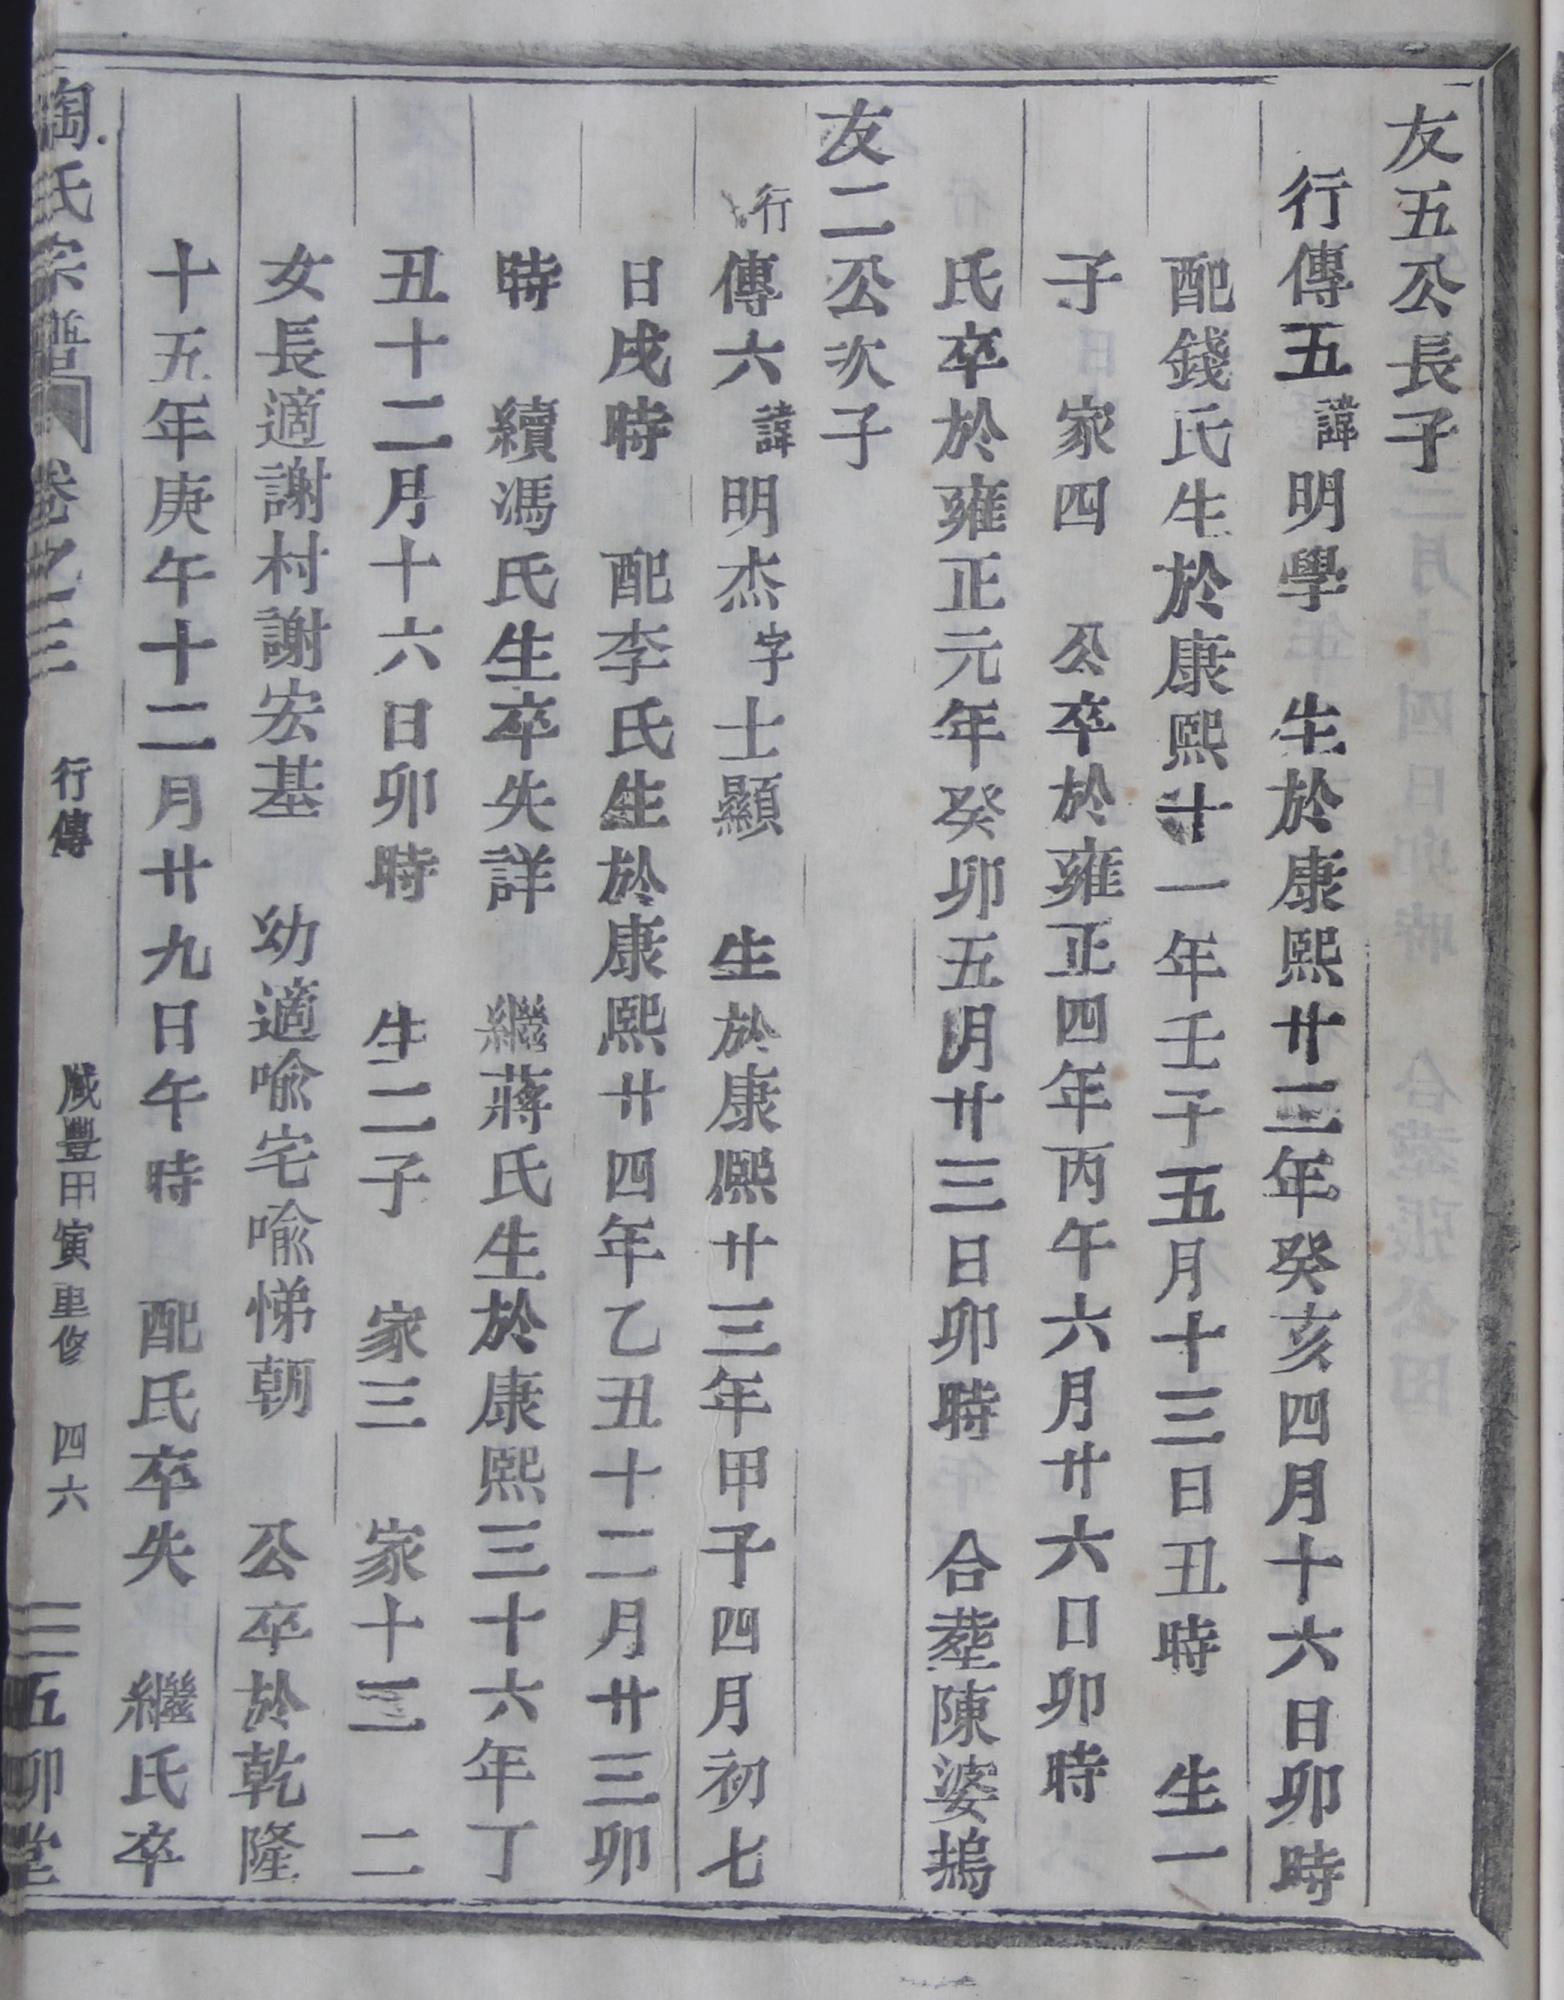 友五公長子
行傳五諱明學　生於康熙廿二年癸亥四月十六日卯時
配錢氏生於康熙十一年壬子五月十三日丑時　生一
子　家四　公卒於雍正四年丙午六月廿六日卯時
氏卒於雍正元年癸卯五月廿三日卯時　合塟陳婆塢
友二公次子
行傳六諱明杰字士顯　生於康熙廿三年甲子四月初七
日戌時　配李氏生於康熙廿四年乙丑十二月廿三卯
時　續馮氏生卒失詳　繼蔣氏生於康熙三十六年丁
丑十二月十六日卯時　生二子　家三　家十三　二
女長適謝村謝宏基　幼適喩宅喩悌朝　公卒於乾隆
十五年庚午十二月廿九日午時　配氏卒失　繼氏卒
陶氏宗譜　卷之三　行傳　咸豐甲寅重修　四六　五柳堂